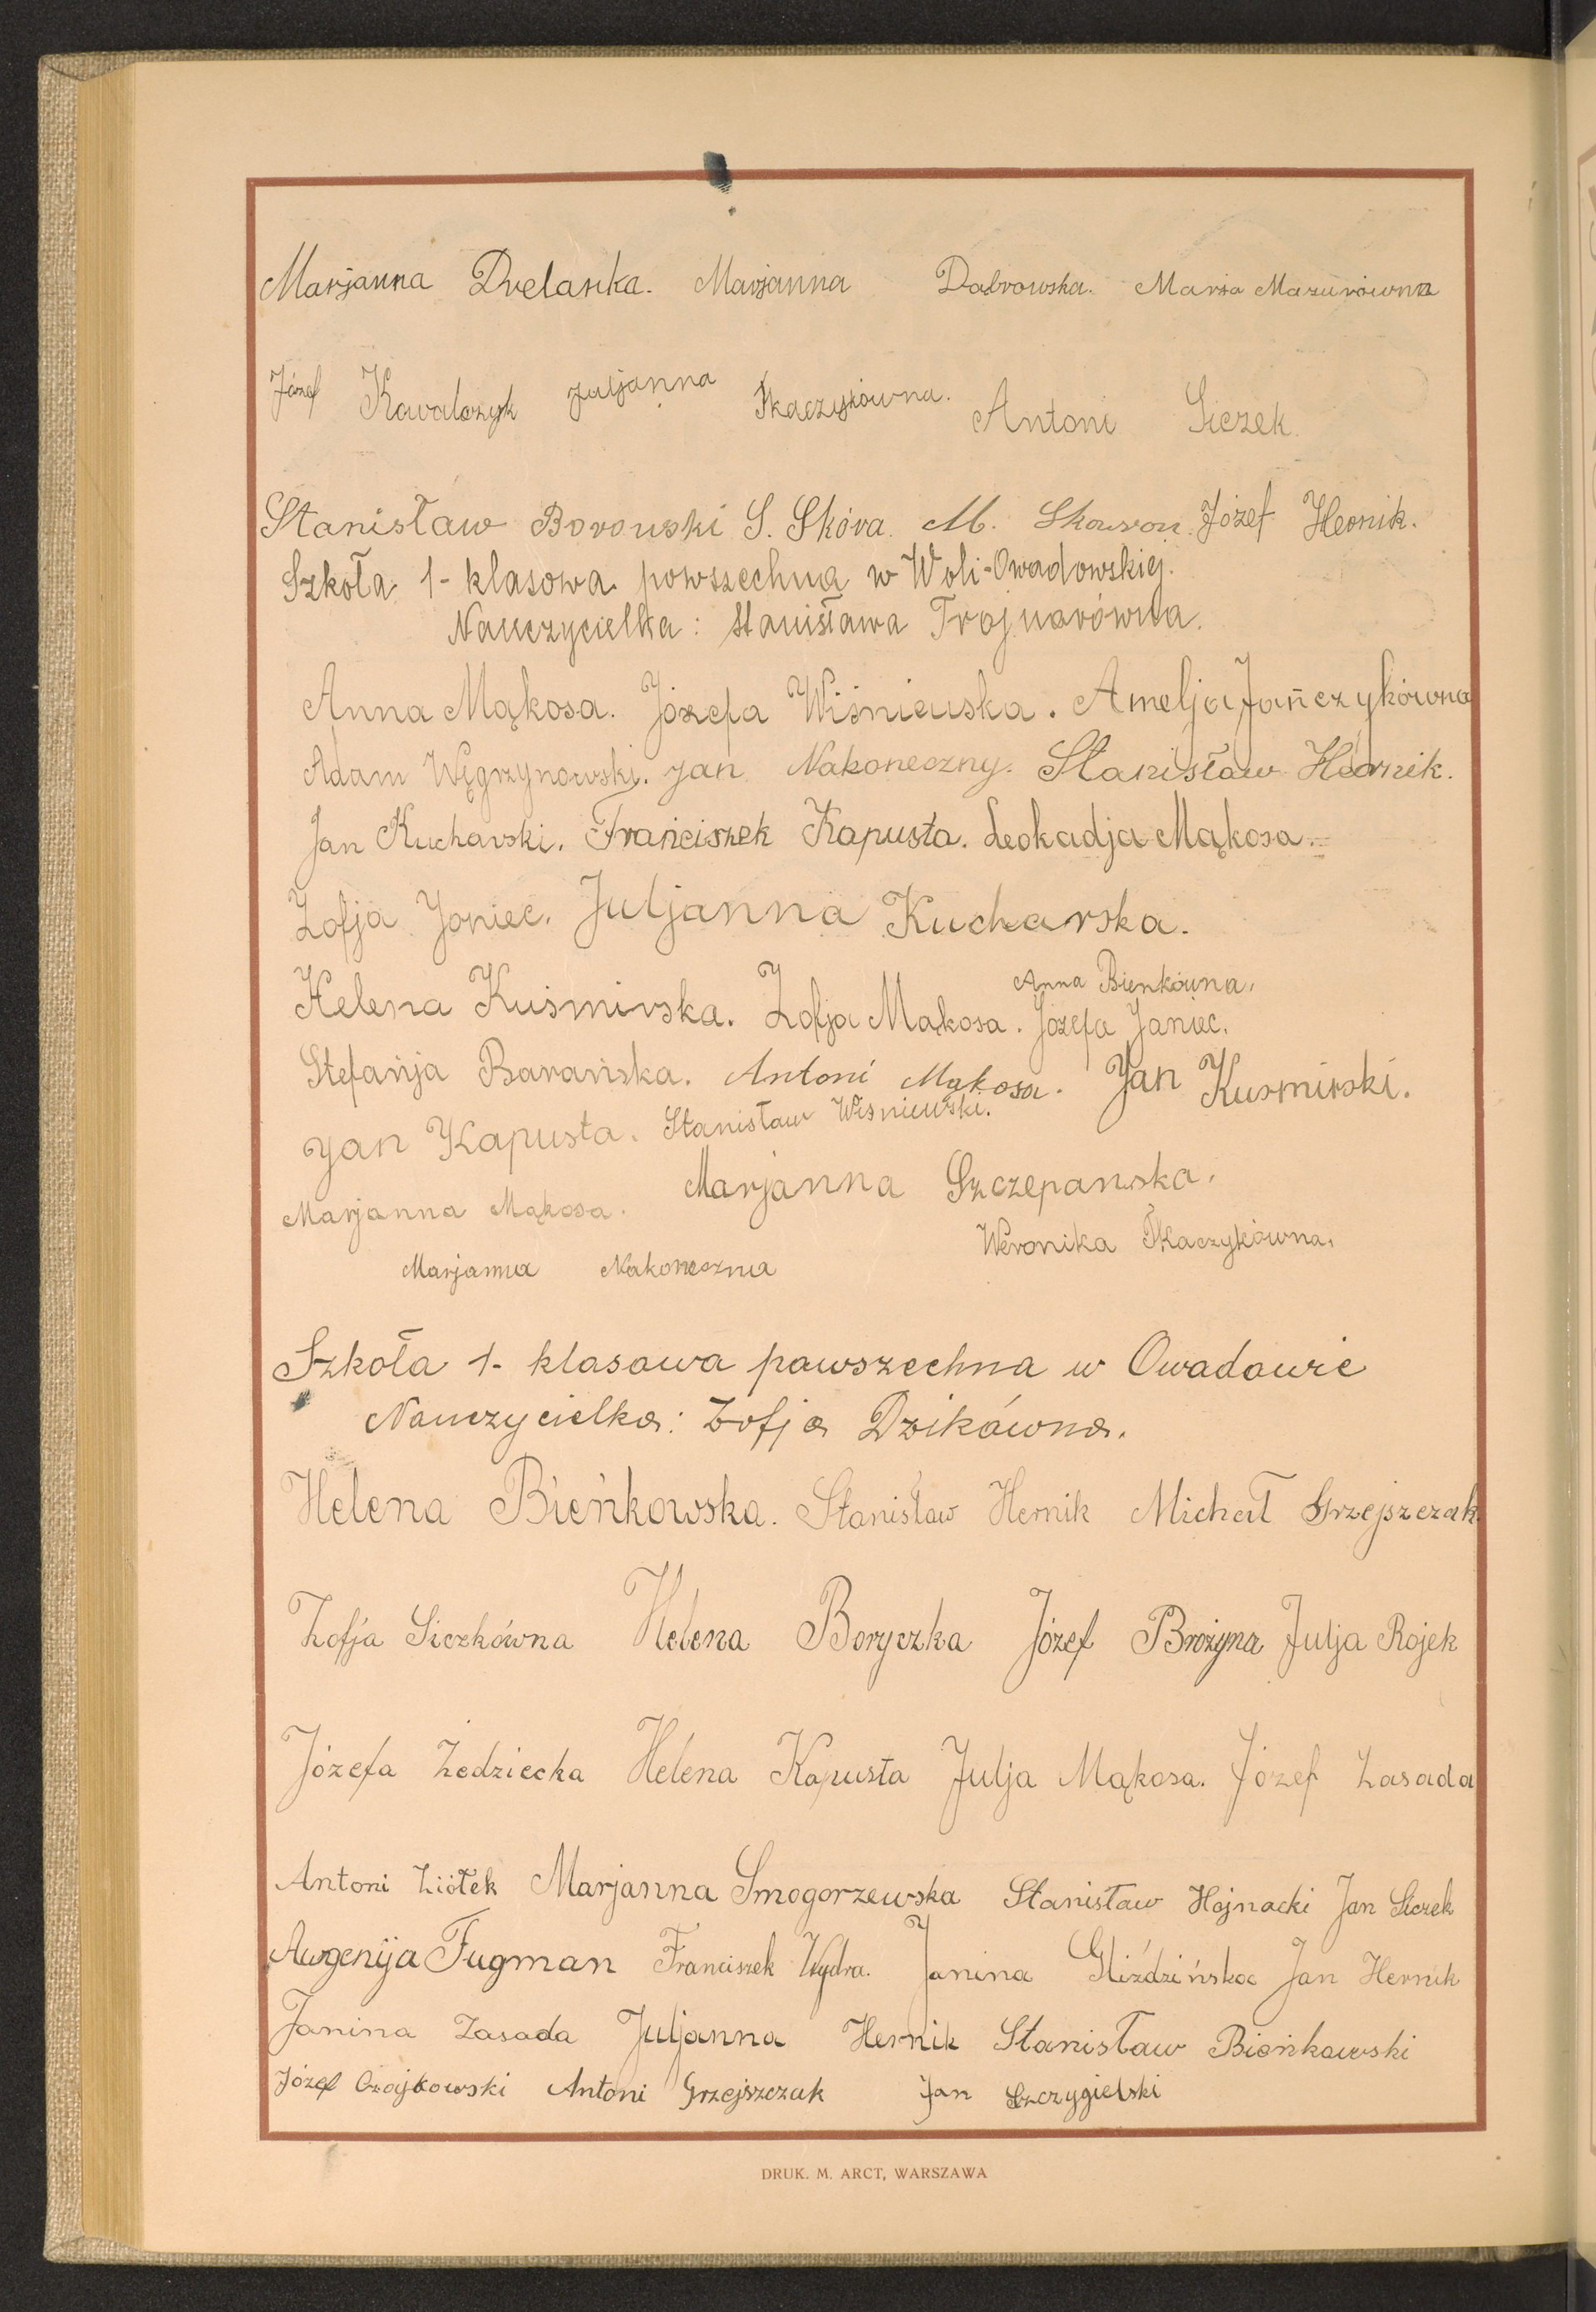 Marjanna Drelanka. Marjanna Dabrowska. Marja Mazurówna
Józef Kowalczyk Juljanna Tkaczykówna. Antoni Siczek.
Stanisław Borowski S. Skóra. M. Skowron. Józef Hernik.
Szkoła 1-klasowa powszechna w Woli-Owadowskiej.
Nauczycielka: Stanisława Trojnarówna.
Anna Mąkosa. Józefa Wiśniewska. Amelja Jańczykówna
Adam Węgrzynowski. Jan Nakoneczny. Stanisław Hernik.
Jan Kucharski. Franciszek Kapusta. Leokadja Mąkosa.
Zofja Joniec. Juljanna Kucharska.
Anna Bienkówna.
Helena Kuśmirska. Zofja Mąkosa. Józefa Janiec.
Stefańja Barańska. Antoni Mąkosa. Jan Kusmirski.
Jan Kapusta. Stanisław Wiśniewski.
Marjanna Mąkosa. Marjanna Szczepanska.
Weronika Tkaczykówna.
Marjanna Nakoneczna
Szkoła 1-klasowa powszechna w Owadowie
Nauczycielka: Zofja Dzikówna.
Helena Bieńkowska. Stanisław Hernik Michał Grzejszczak.
Zofja Siczkówna Helena Boryczka Józef Brożyna Julja Rojek
Józefa Zedziecka Helena Kapusta Julja Mąkosa. Józef Zasada
Antoni Ziółek Marjanna Smogorzewska Stanisław Hojnacki Jan Siczek
Augenija Fugman Franciszek Wydra. Janina Gliździńska Jan Hernik
Janina Zasada Juljanna Hernik Stanisław Bieńkowski
Józef Czajkowski Antoni Grzejszczak Jan Szczygielski
DRUK. M. ARCT, WARSZAWA